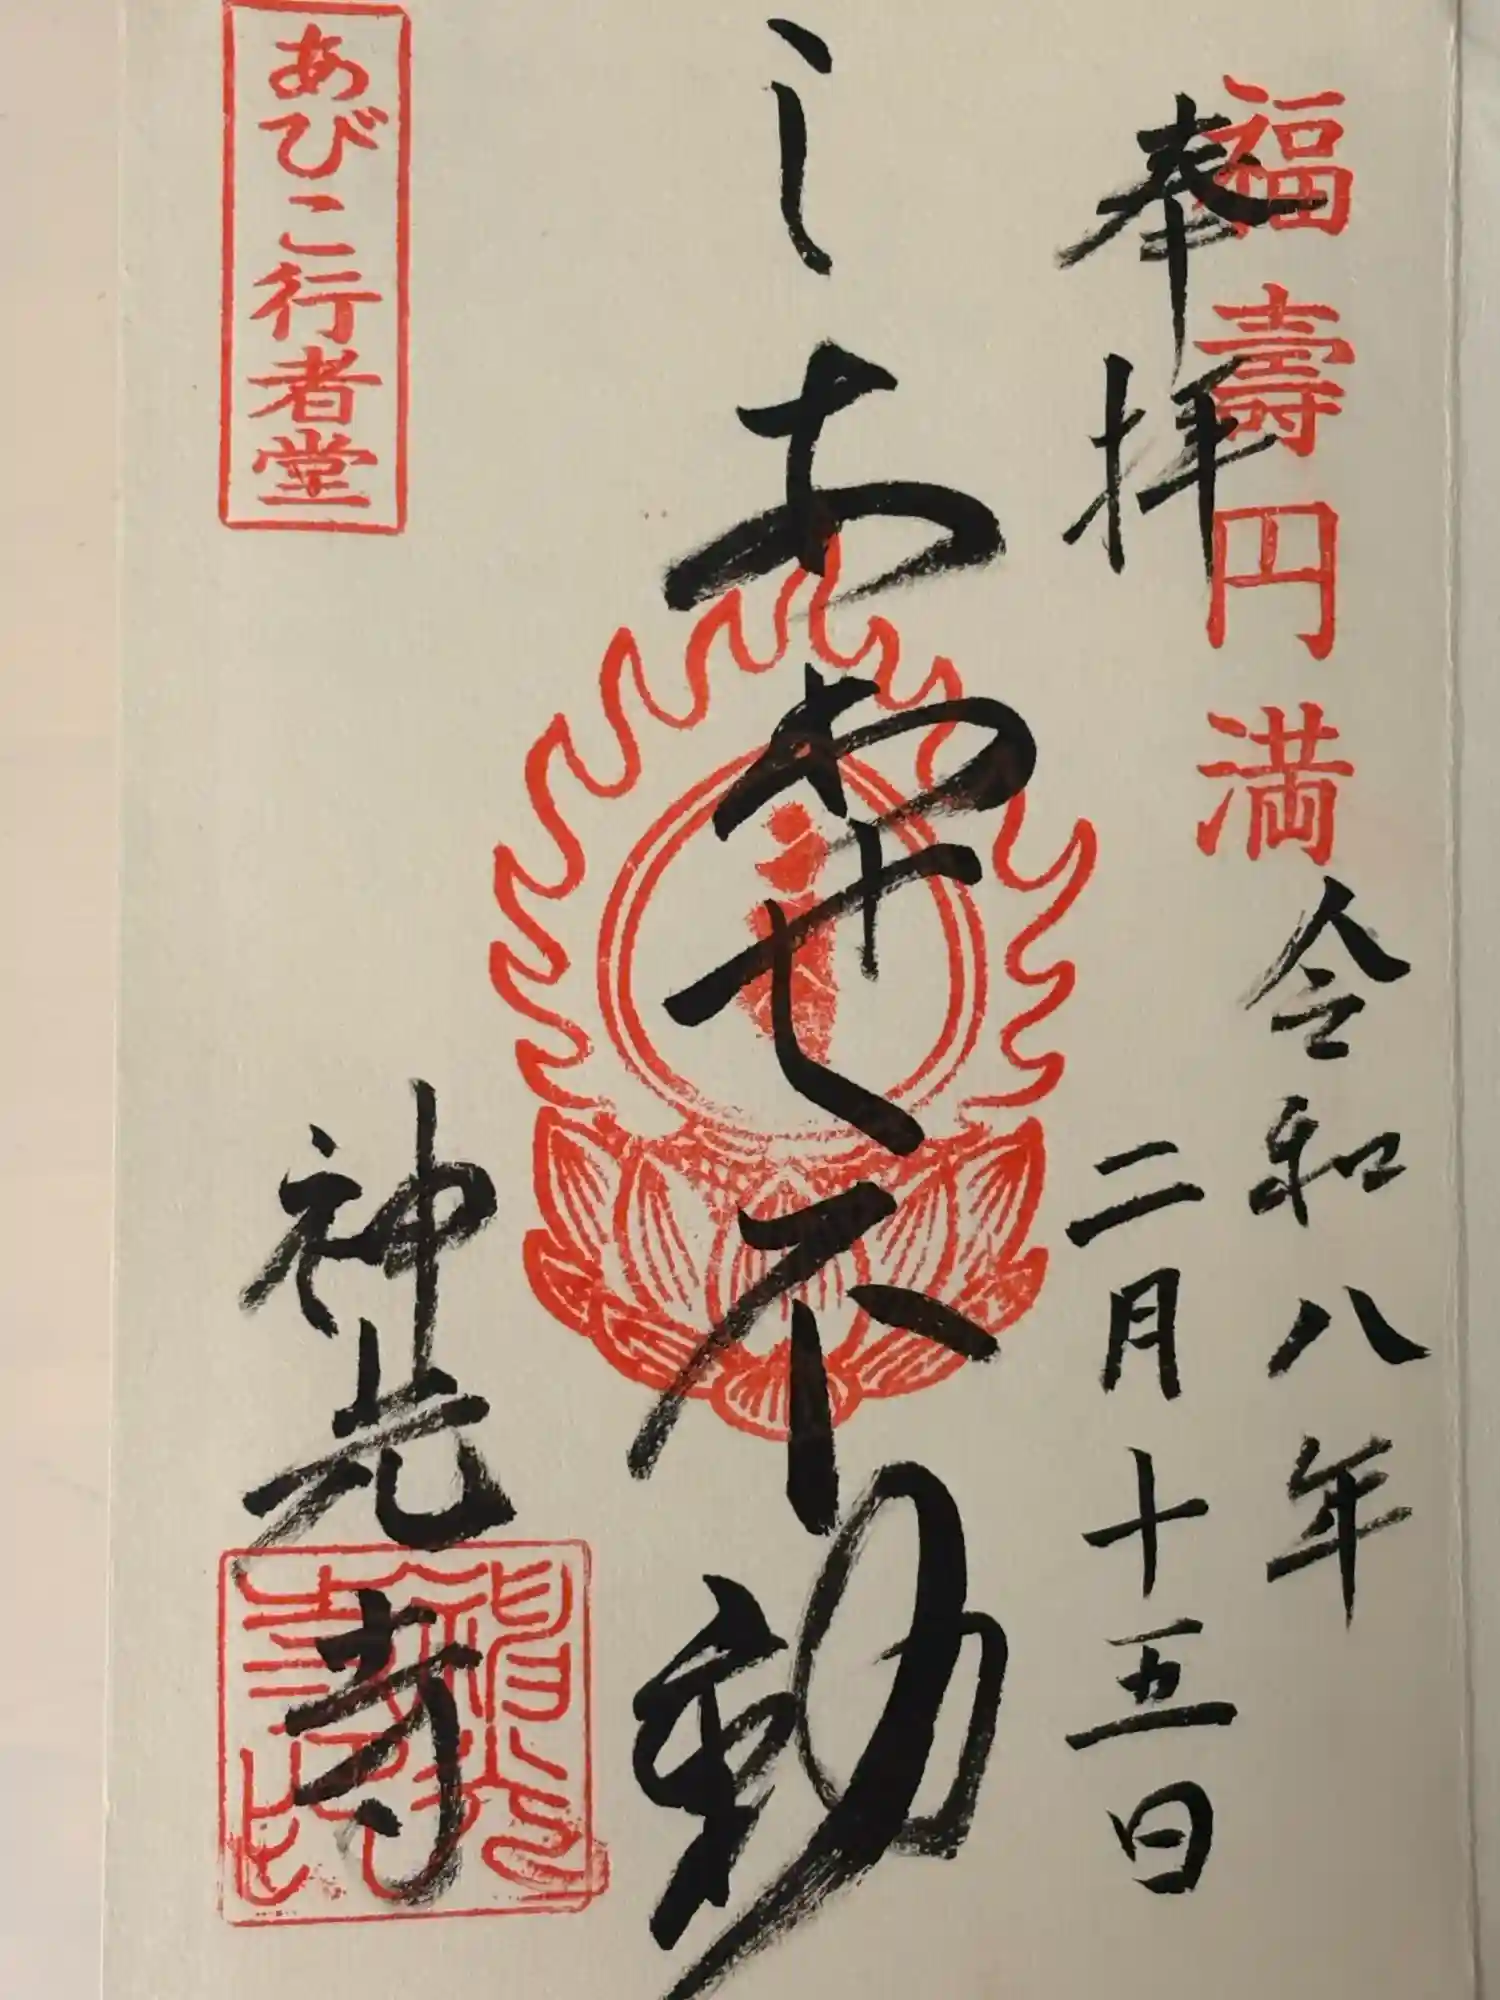 福壽円満
奉拝
令和八年
二月十五日
しあわせ不動
あびこ行者堂
神光寺